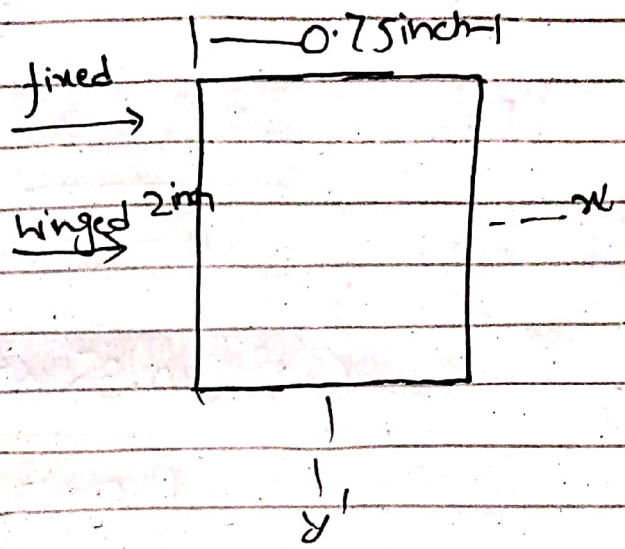 0.75inch
fixed
hinged 2inch
x
y'